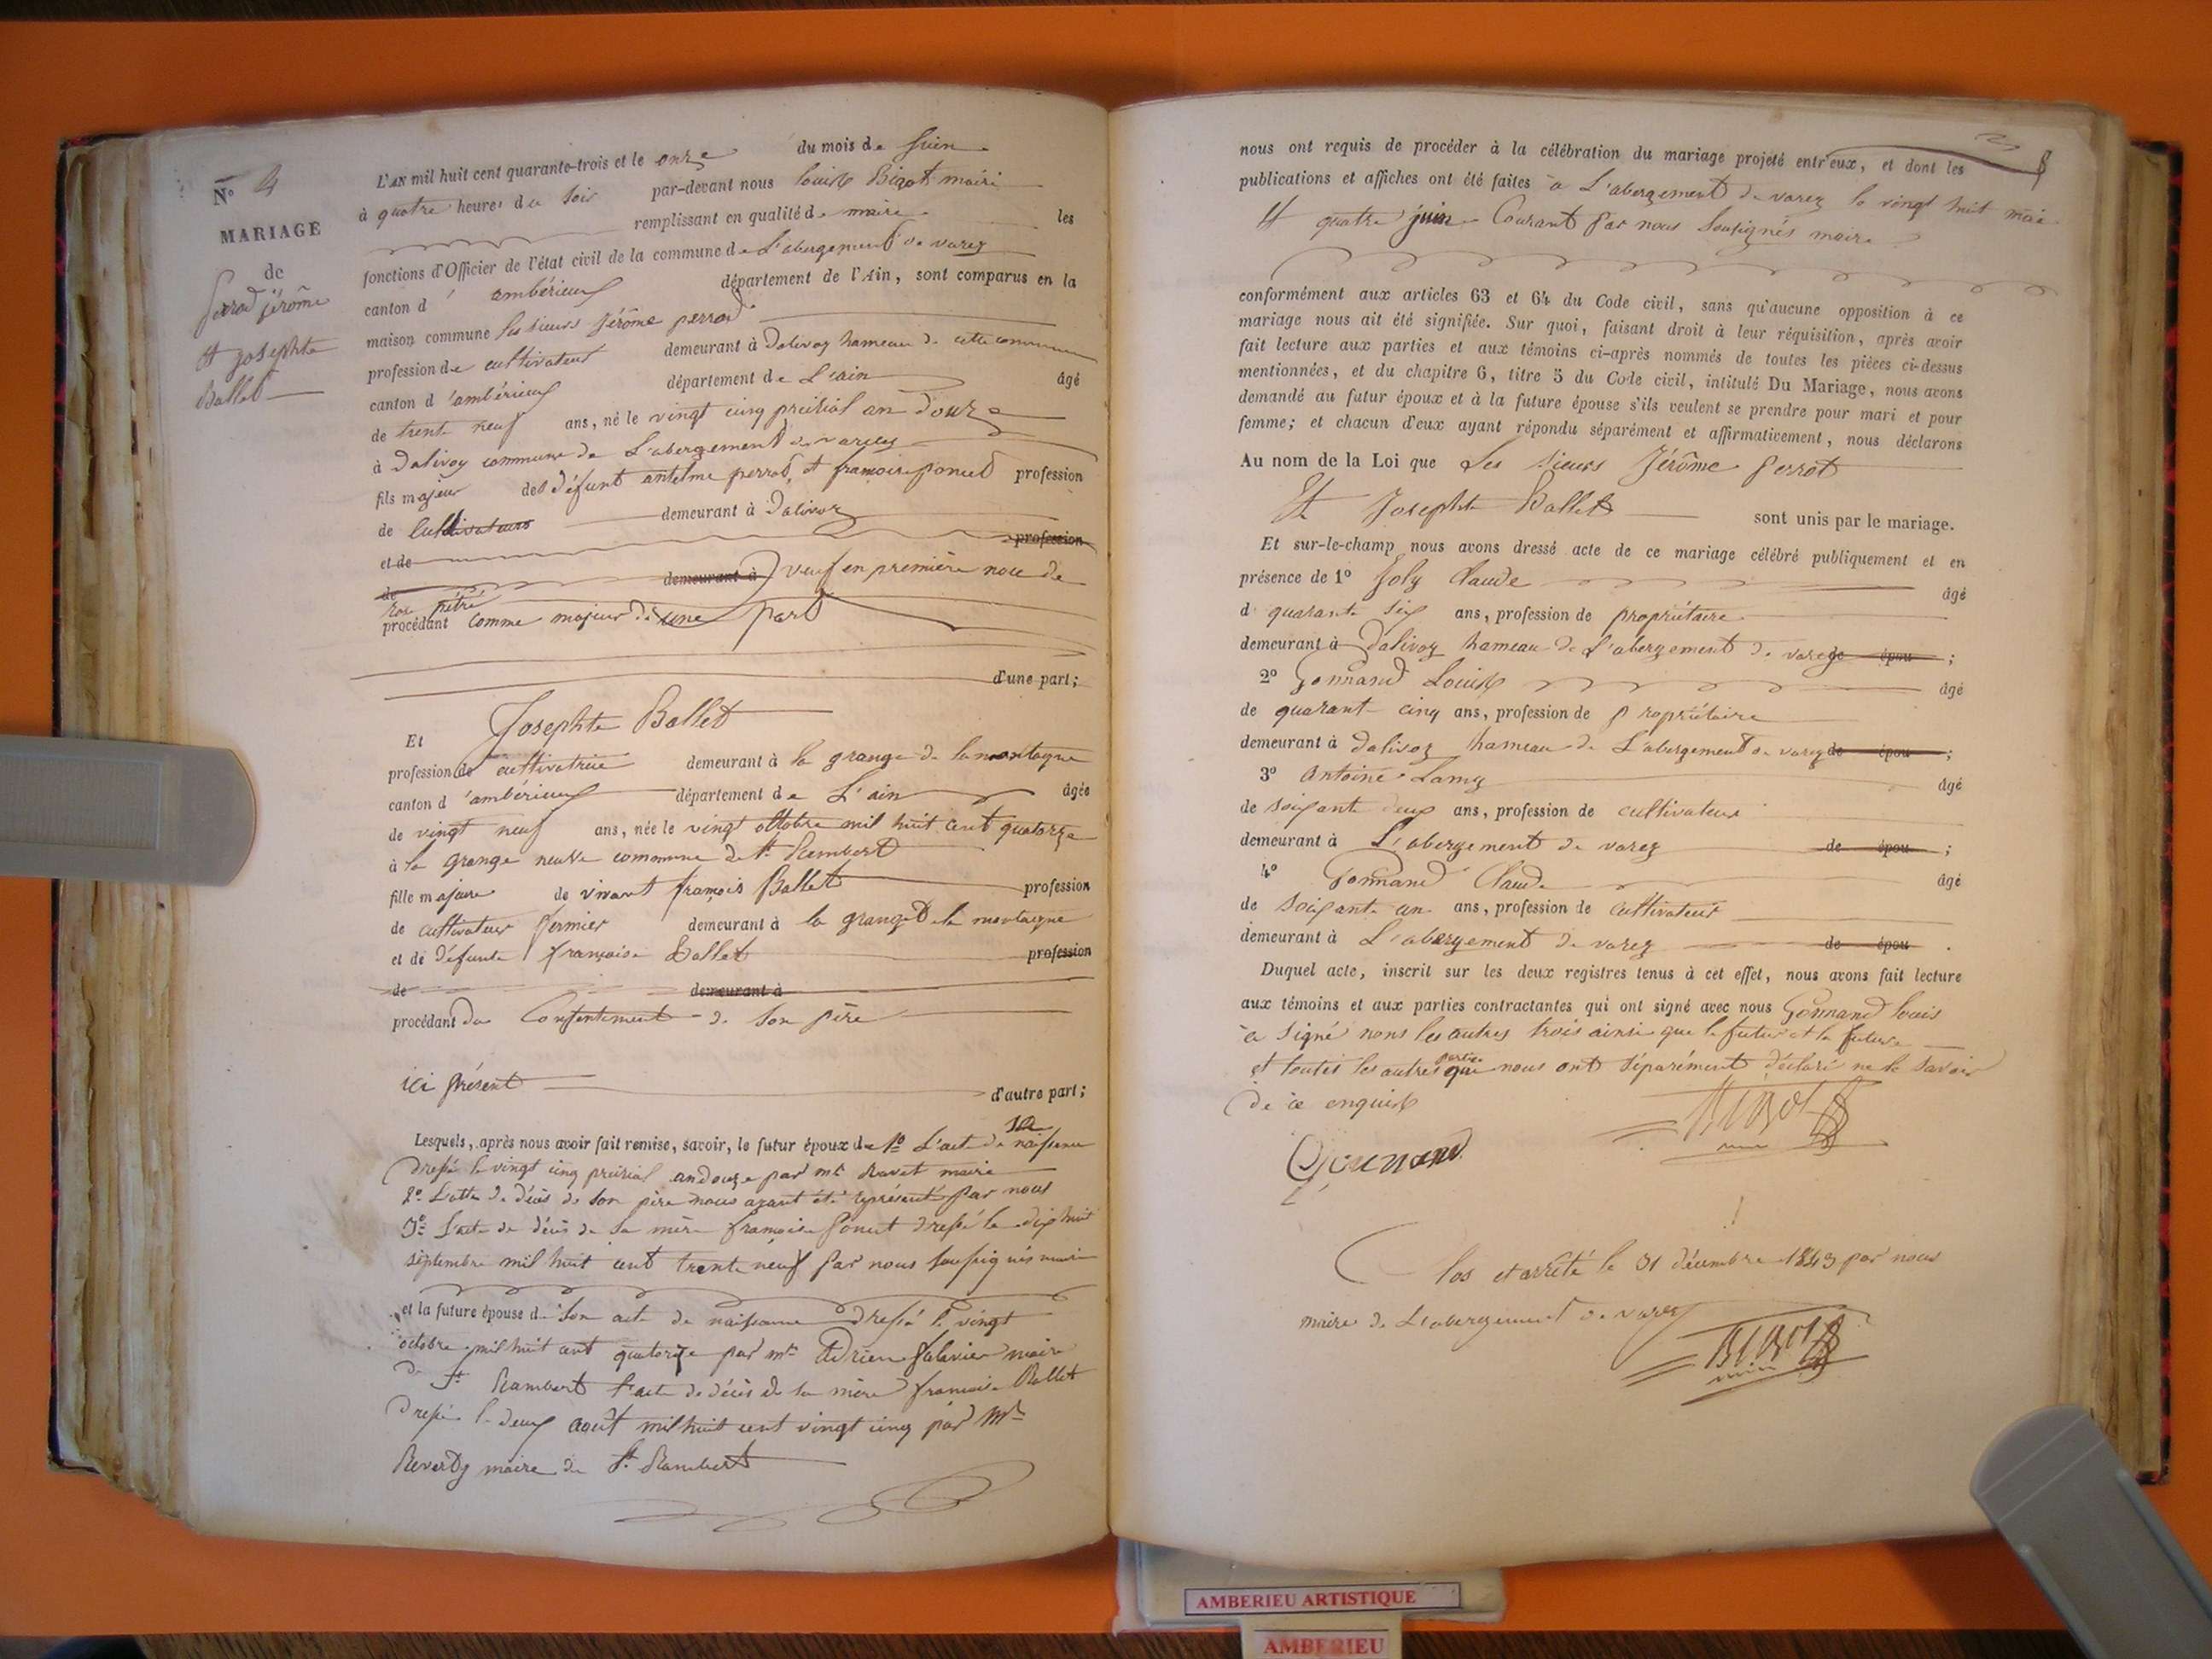 N° 4
MARIAGE
de
Perrod jérôme
et josephte
Ballet
L'AN mil huit cent quarante-trois et le onze du mois de juin
à quatre heures du soir par-devant nous louis Bizot maire
remplissant en qualité de maire les
fonctions d'Officier de l'état civil de la commune de L'abergement de varey
canton d'ambérieux département de l'Ain, sont comparus en la
maison commune les sieurs Jérôme perrod
profession de cultivateur demeurant à Dalivoy hameau de cette commune
canton d'ambérieux département de L'ain âgé
de trente neuf ans, né le vingt cinq preirial an douze
à Dalivoy commune de L'abergement de varey
fils majeur des défunt antelme perrod et françoise poncet profession
de cultivateurs demeurant à Dalivoy
et de profession
de demeurant à veuf en première noce de
procédant comme majeur d'une part
d'une part;
Et Josephte Ballet
profession de cultivatrice demeurant à la grange de la montagne
canton d'ambérieux département de L'ain âgée
de vingt neuf ans, née le vingt octobre mil huit cent quatorze
à la grange neuve commune de St Rambert
fille majeure de vivant françois Ballet profession
de cultivateur fermier demeurant à la grange de la montagne
et de défunte françoise Ballet profession
de demeurant à
procédant du consentement de son père
ici présent d'autre part;
Lesquels, après nous avoir fait remise, savoir, le futur époux de 1° L'acte de sa naissance
dressé le vingt cinq preirial an douze par mr Ravet maire
2° L'acte de décès de son père nous ayant été représenté par nous
3° L'acte de décès de sa mère françoise Poncet dressé le dix huit
septembre mil huit cent trente neuf par nous soussignés maire
et la future épouse de son acte de naissance dressé le vingt
octobre mil huit cent quatorze par mr Adrien falavier maire
de St Rambert l'acte de décès de sa mère françoise Ballet
dressé le deux août mil huit cent vingt cinq par Mr
Reverdy maire de St Rambert
nous ont requis de procéder à la célébration du mariage projeté entr'eux, et dont les
publications et affiches ont été faites à L'abergement de varey le vingt huit mai
et quatre juin Courant par nous soussignés maire
conformément aux articles 63 et 64 du Code civil, sans qu'aucune opposition à ce
mariage nous ait été signifiée. Sur quoi, faisant droit à leur réquisition, après avoir
fait lecture aux parties et aux témoins ci-après nommés de toutes les pièces ci-dessus
mentionnées, et du chapitre 6, titre 5 du Code civil, intitulé Du Mariage, nous avons
demandé au futur époux et à la future épouse s'ils veulent se prendre pour mari et pour
femme; et chacun d'eux ayant répondu séparément et affirmativement, nous déclarons
Au nom de la Loi que Les sieurs Jérôme Perrot
Et Josephte Ballet sont unis par le mariage.
Et sur-le-champ nous avons dressé acte de ce mariage célébré publiquement et en
présence de 1° Joly Claude âgé
d quarante six ans, profession de propriétaire
demeurant à Dalivoy hameau de L'abergement de varey de épou ;
2° Gonnand Louis âgé
de quarant cinq ans, profession de propriétaire
demeurant à dalivoy hameau de L'abergement de varey de épou ;
3° Antoine Lamy âgé
de soixante deux ans, profession de cultivateur
demeurant à L'abergement de varey de épou ;
4° Gonnand Claude âgé
de soixante un ans, profession de cultivateur
demeurant à L'abergement de varey de épou .
Duquel acte, inscrit sur les deux registres tenus à cet effet, nous avons fait lecture
aux témoins et aux parties contractantes qui ont signé avec nous Gonnand louis
a signé nons les autres trois ainsi que le futur et la future
et toutes les autres partie qui nous ont séparément déclaré ne le savoir
de ce enquis
BIZOT
Gounand
Clos et arrêté le 31 décembre 1843 par nous
maire de L'abergement de varey
BIZOT
AMBERIEU ARTISTIQUE
AMBERIEU